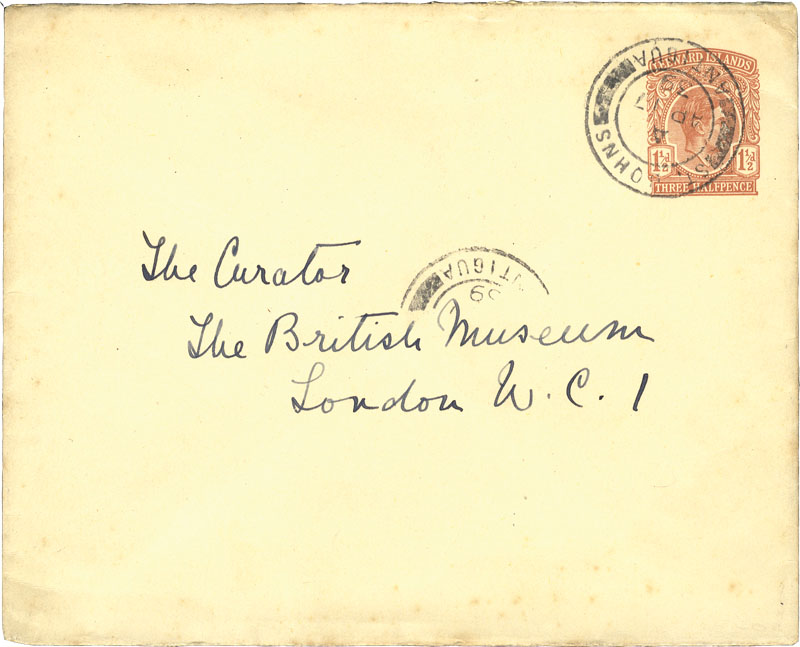 LEEWARD ISLANDS
1½d 1½d
THREE HALFPENCE
ST JOHNS
ANTIGUA
The Curator
ANTIGUA
The British Museum
London W.C.1